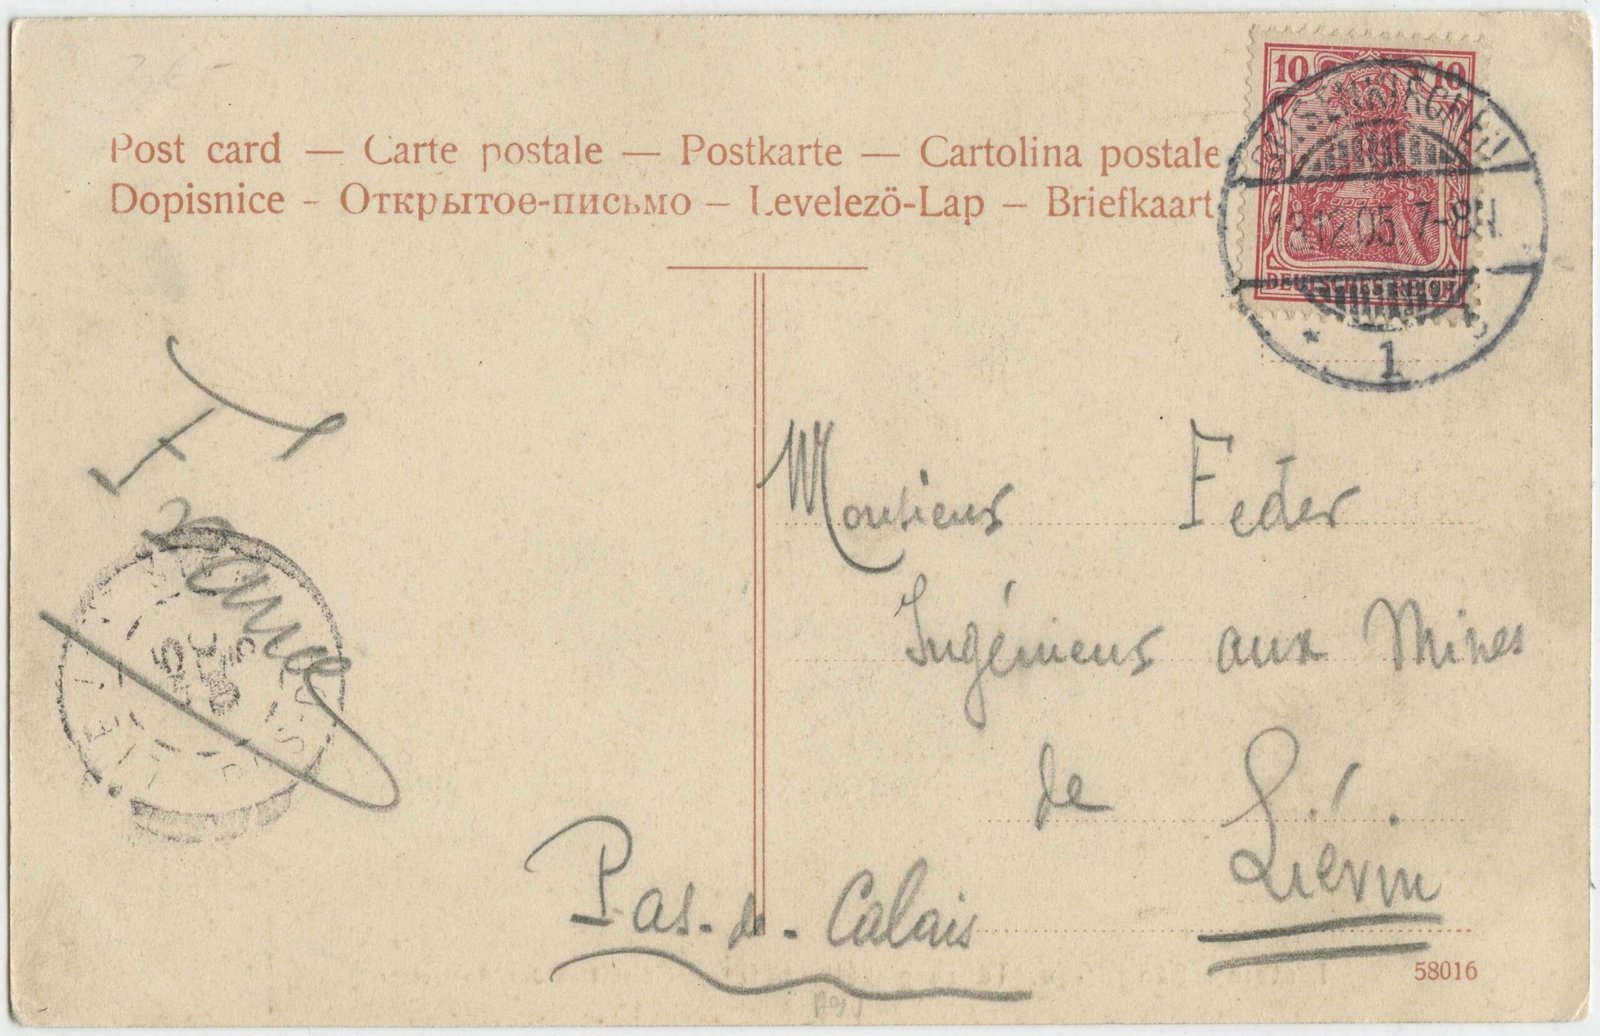 Post card — Carte postale — Postkarte — Cartolina postale
Dopisnice - Открытое-письмо – Levelezö-Lap – Briefkaart
10 10
DEUTSCHES REICH
GELSENKIRCHEN
12.05 7-8N.
* 1
France
Monsieur Feder
Ingénieur aux Mines
de Liévin
Pas-de-Calais
58016